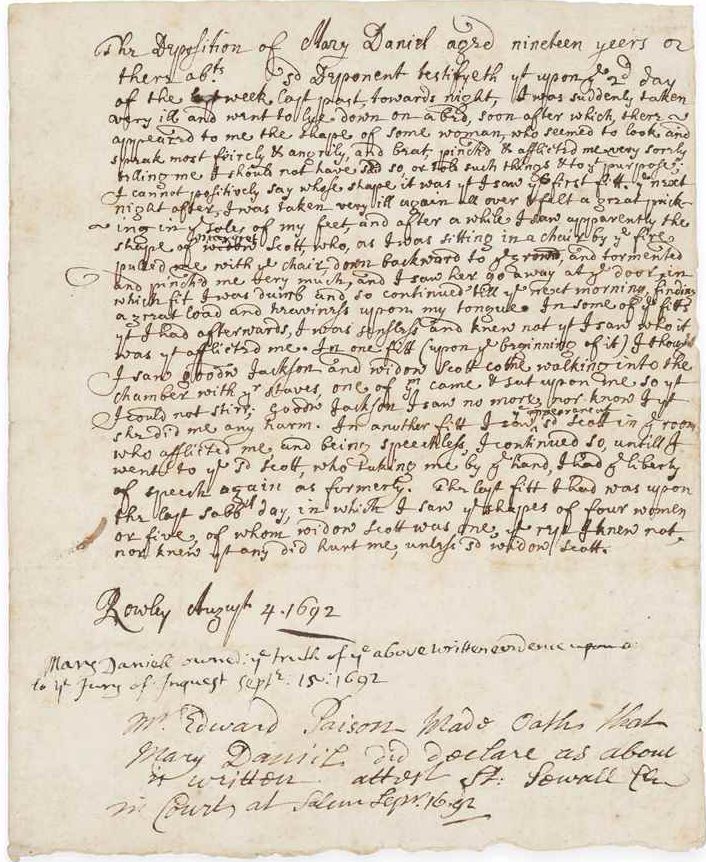 The Deposition of Mary Daniel aged nineteen yeers or
there abts sd Deponent testifyeth yt upon ye 2d day
of the week last past, towards night, I was suddenly taken
very ill and went to lye down on a bed, soon after which, there
appeared to me the shape of some woman, who seemed to look and
speak most feircly & angrily, and beat, pinch'd & afflicted me very sorely
telling me I should not have sed so, or told such things & to yt purpose
I cannot positively say whose shape it was yt I saw in ye first fitt. ye next
night after, I was taken very ill again all over & felt a great prick-
ing in ye soles of my feet, and after a while I saw apparently the
shape of Margret Scott, who, as I was sitting in a chair by ye fire
pulled me with ye chair, down backward to ye ground, and tormented
and pinch'd me very much, and I saw her go away at ye door, in
which fit I was dumb and so continued till ye next morning, finding
a great load and heaviness upon my tongue. In some of ye fitts
yt I had afterwards, I was sensless and knew not yt I saw who it
was yt afflicted me. In one fitt (upon ye beginning of it) I thought
I saw goodw Jackson and widow Scott come walking into the
chamber with yr staves, one of ym came & sat upon me so yt
I could not stirr; Goodw Jackson I saw no more, nor know I yt
she did me any harm. In another fitt I saw ye appearance of sd Scott in ye room
who afflicted me, and being speechless, I continued so, untill I
went to ye sd Scott, who taking me by ye hand, I had ye liberty
of speech again as formerly. The last fitt I had was upon
the last Sabbth day, in which I saw ye shapes of four women
or five, of whom widow Scott was one, ye rest I knew not,
nor knew yt any did hurt me, unless sd widow Scott.
Rowley August 4. 1692
Mary Daniell owned: ye truth of ye above written evidence
to ye Jury of Inquest Septr: 15: 1692
Mr. Edward Paison Made Oath that
Mary Daniel did declare as above
is written attest St: Sewall Cler
in Court at Salem Sepr. 16. 92